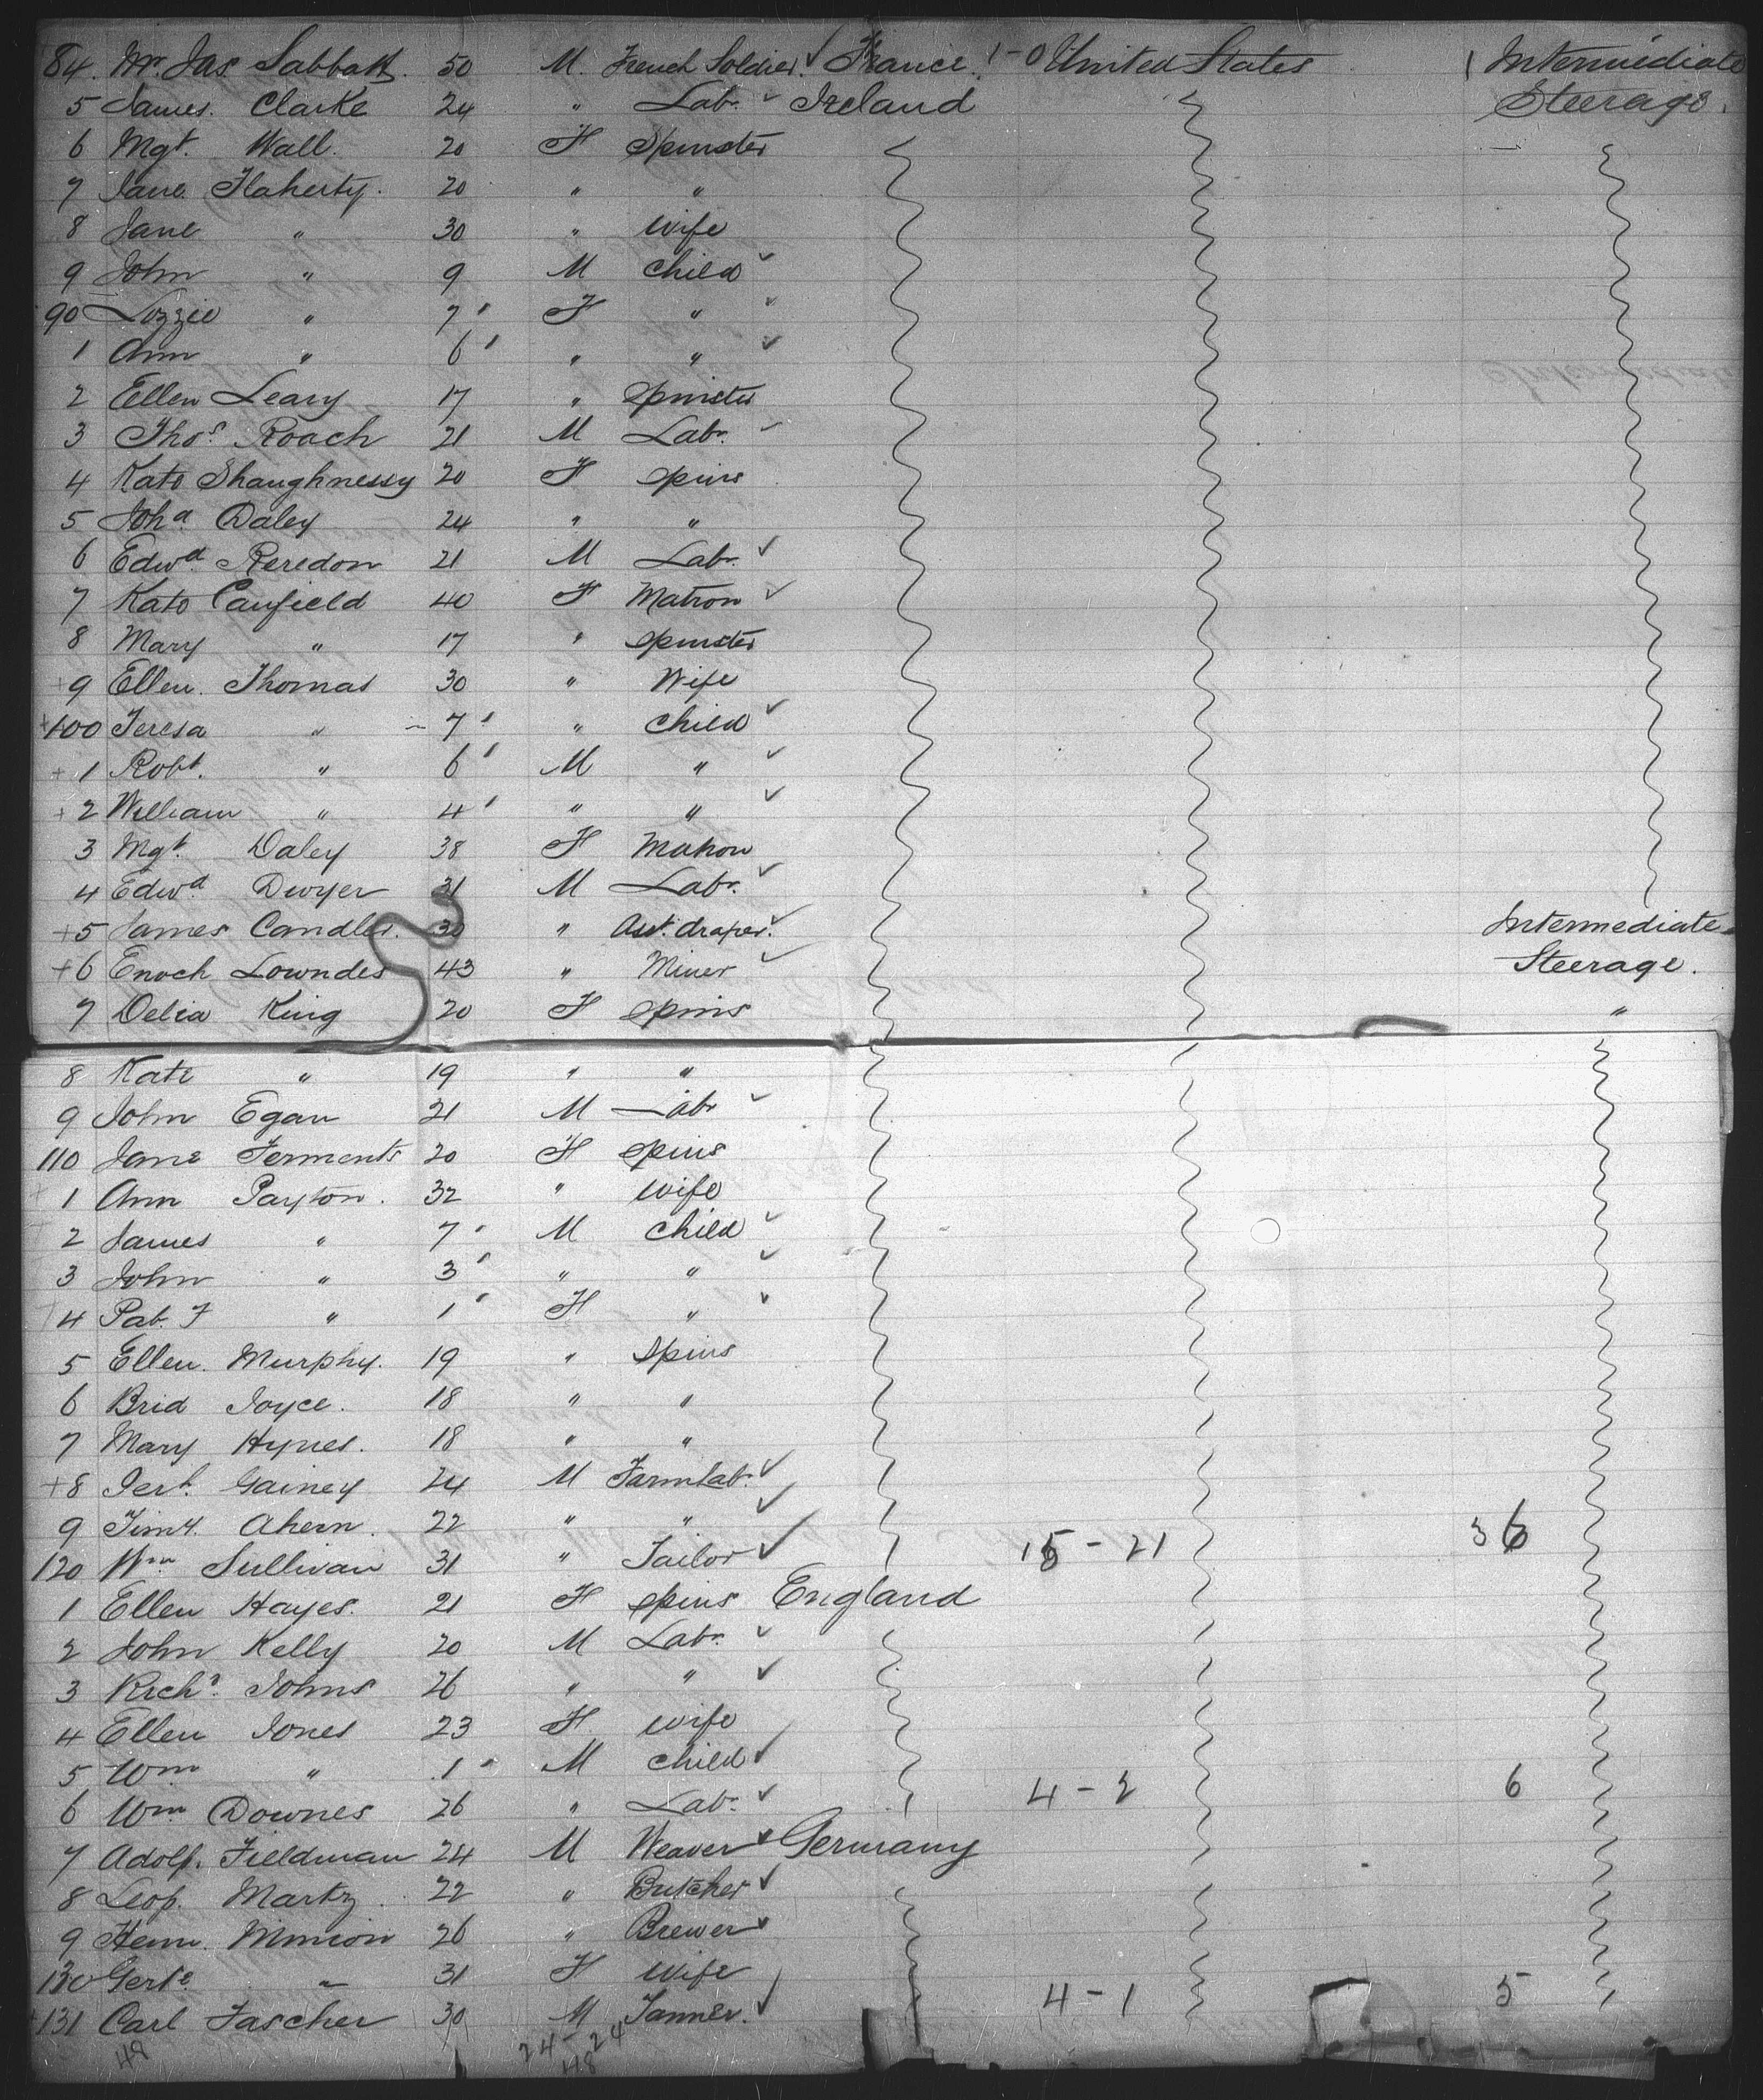 84. Mr. Jas Sabbatt. 50 M. French Soldier. ✓ France. 1-0 United States 1 Intermediate
5 James. Clarke 24 " Lab. ✓ Ireland Steerage.
6 Mgt. Wall. 20 F Spinster
7 Jane Flaherty. 20 " "
8 Jane " 30 " Wife
9 John " 9 M Child ✓
90 Lizzie " 7 ' F " ✓
1 Ann " 6 ' " " ✓
2 Ellen Leary 17 " Spinster
3 Thos. Roach 21 M Labr. ✓
4 Kate Shaughnessy 20 F Spins
5 Joha Daley 24 " "
6 Edwd. Reredon 21 M Labr. ✓
7 Kate Caufield 40 F Matron ✓
8 Mary " 17 " Spinster
+9 Ellen. Thomas 30 " Wife
+100 Teresa " - 7 ' " Child ✓
+1 Robt. " 6 ' M " ✓
+2 William " 4 ' " " ✓
3 Mgt. Daley 38 F Matron
4 Edwd. Dwyer 31 M Labr. ✓
+5 James Candler. 30 " Ast. draper. ✓ Intermediate
+6 Enoch Lowndes 43 " Miner ✓ Steerage.
7 Delia King 20 F Spins "
8 Kate " 19 " "
9 John Egan 21 M Labr ✓
110 Jane Ferments 20 F Spins
+ 1 Ann Payton. 32 " Wife
+ 2 James " 7 ' M Child ✓
3 John " 3 ' " " ✓
+ 4 Pat. F " 1 ' F " ✓
5 Ellen. Murphy. 19 " Spins
6 Brid Joyce. 18 " "
7 Mary Hynes. 18 " "
+8 Jert. Gainey 24 M Farm Labr. ✓
9 Timy. Ahern. 22 " " ✓
120 Wm Sullivan 31 " Tailor ✓ 15 - 21 36
1 Ellen Hayes. 21 F Spins England
2 John Kelly 20 M Labr. ✓
3 Richd. Johns 26 " " ✓
4 Ellen Jones 23 F. Wife
5 Wm " 1 ' M Child ✓
6 Wm Downes 26 " Labr. ✓ 4 - 2 6
7 Adolf. Fieldman 24 M Weaver ✓ Germany
8 Leop. Martz. 22 " Butcher ✓
9 Henr. Minion 26 " Brewer ✓
130 Gerte " 31 F Wife
+131 Carl Fascher 30 M Tanner. ✓ 4 - 1 5
48 24 - 24
48